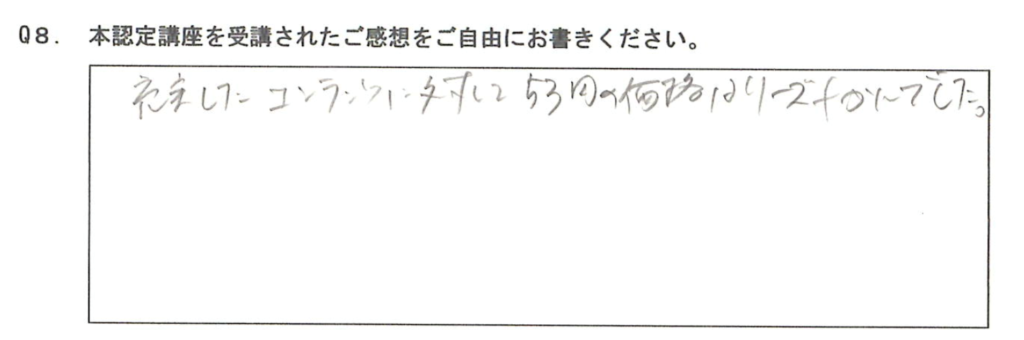 Q8. 本認定講座を受講されたご感想をご自由にお書きください。
充実したコンテンツに対して53円の価格はリーズナブルでした。